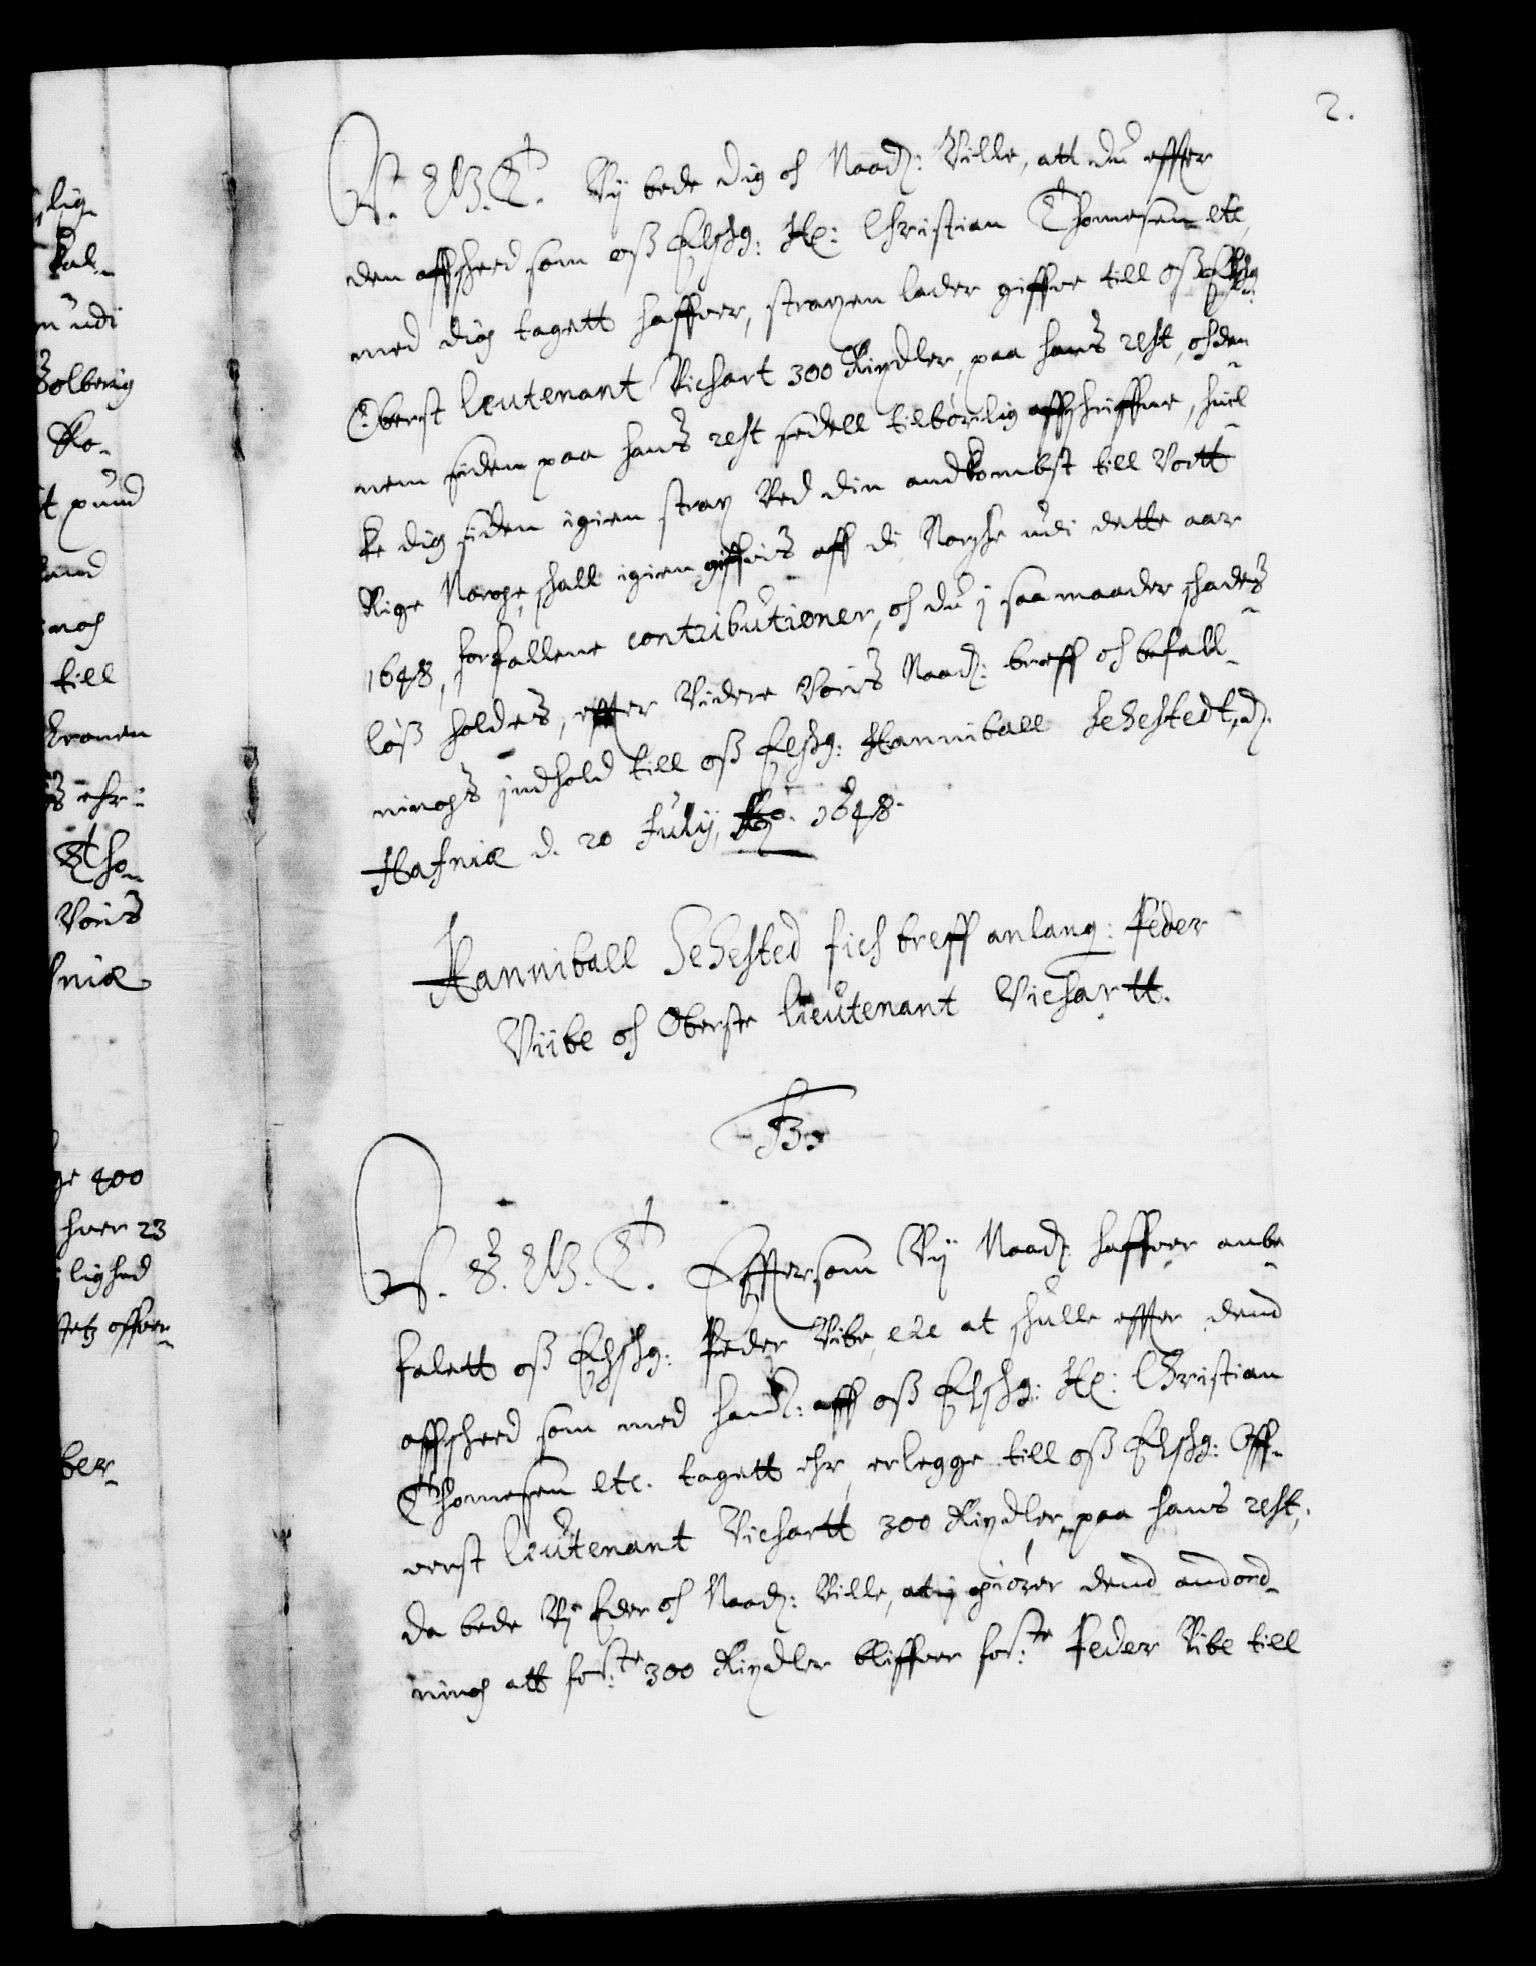 2.
W. G. T. Vij bede dig och Naad: Ville, att du effter
den affsheed som oß Elskg: Hr: Christian Thomesen etc,
med dig tagett haffuer, straxen lader giffue till oß Elskg:
Oberst leutenant Vichart 300 Rixdler, paa hans rest, och den-
nem siden paa hans rest sedell tilbörlig affskriffue, huil-
ke dig siden igien strax Ved din andkombst till Vortt
Rige Norge, skall igien giffuis aff di Norske udi dette aar
1648, forfallene contributioner, och du j saa maader skades-
löß holdes, effter Videre Voris Naad: breff och befall-
ningh's jndhold till oß Elskg: Hanniball Sehestedt, d:
Hafniæ d. 20 Julij, Ao. 1648.
Hanniball Sehested fich breff anlang: Peder
Viibe och Oberste lieutenant Vichartt.
V. S. G. T. Effttersom Vij Naad: haffuer anbe-
falett oß Elskg: Peder Vibe, etc at skulle effter dend
affskeed som med hand: aff oß Elskg: Hr: Christian
Thomesen etc. tagett ehr, erlegge till oß Elskg: Off-
uerst leutenant Vichartt 300 Rixdler, paa hans rest,
da bede Vij Eder och Naad: Ville, at i giörer dend andord-
ningh att for:te 300 Rixdler bliffuer for:te Peder Vibe till
lig-
udi
Solberig
Ro-
pund
noch
till
Cronen
ehr
Tho-
Voris
niæ
400
huer 23
lighed
offuer-
ber-